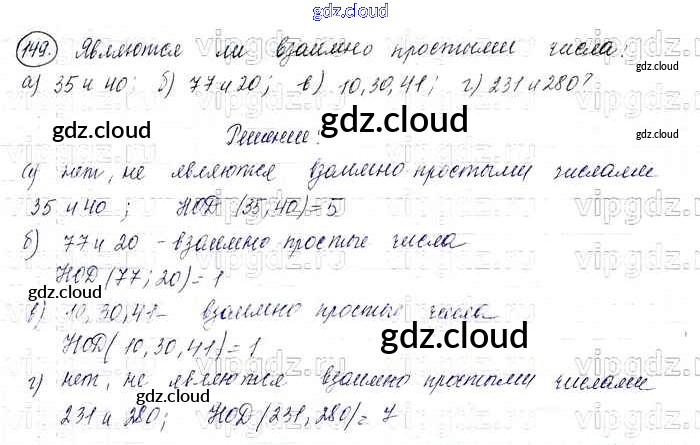 gdz.cloud
149. Являются ли взаимно простыми числа:
а) 35 и 40; б) 77 и 20; в) 10,30,41; г) 231 и 280?
gdz.cloud
gdz.cloud
gdz.cloud
Решение:
а) нет, не являются взаимно простыми числами
35 и 40; НОД (35,40)=5
б) 77 и 20 - взаимно простые числа
НОД (77; 20)=1
gdz.cloud
gdz.cloud
в) 10,30,41- взаимно простые числа
gdz.cloud
НОД( 10,30,41)=1
г) нет, не являются взаимно простыми числами
231 и 280; НОД (231,280)= 7
gdz.cloud
gdz.cloud